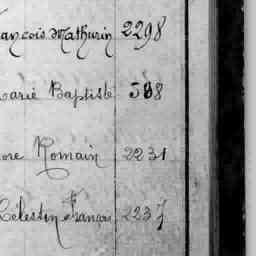 ançois Mathurin 2298
arie Baptiste 388
ore Romain 2231
Célestin François 2237